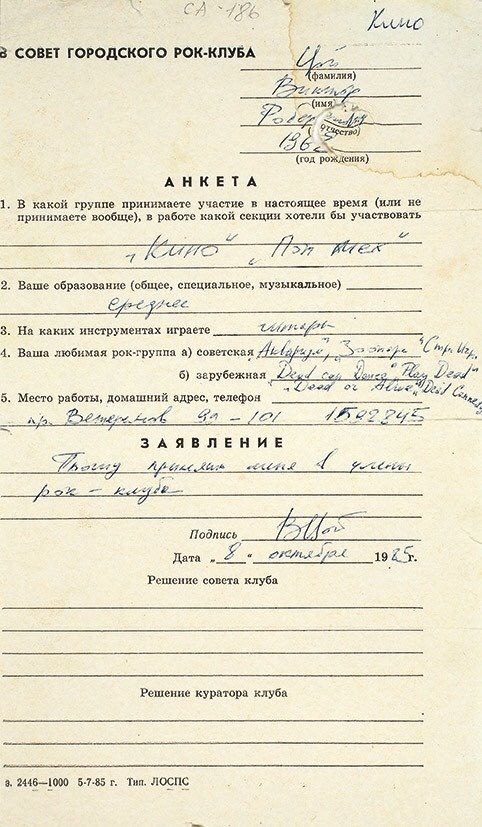 СА-186
Кино
В СОВЕТ ГОРОДСКОГО РОК-КЛУБА
Цой
(фамилия)
Виктор
(имя)
отчество)
(год рождения)
АНКЕТА
1. В какой группе принимаете участие в настоящее время (или не
принимаете вообще), в работе какой секции хотели бы участвовать
„Кино“ „Поп мех“
2. Ваше образование (общее, специальное, музыкальное)
среднее
3. На каких инструментах играете гитара
4. Ваша любимая рок-группа а) советская „Аквариум“, Зоопарк “Стр. Игры
б) зарубежная „Dead can Dance“ Play Dead“
„Dead or Alive“, Dead Kennedy
5. Место работы, домашний адрес, телефон
пр. Ветеранов 99 - 101 1592245
ЗАЯВЛЕНИЕ
Прошу принять меня в члены
рок - клуба
Подпись ВЦой
Дата „8“ октября 1985г.
Решение совета клуба
Решение куратора клуба
з. 2446—1000 5-7-85 г. Тип. ЛОСПС